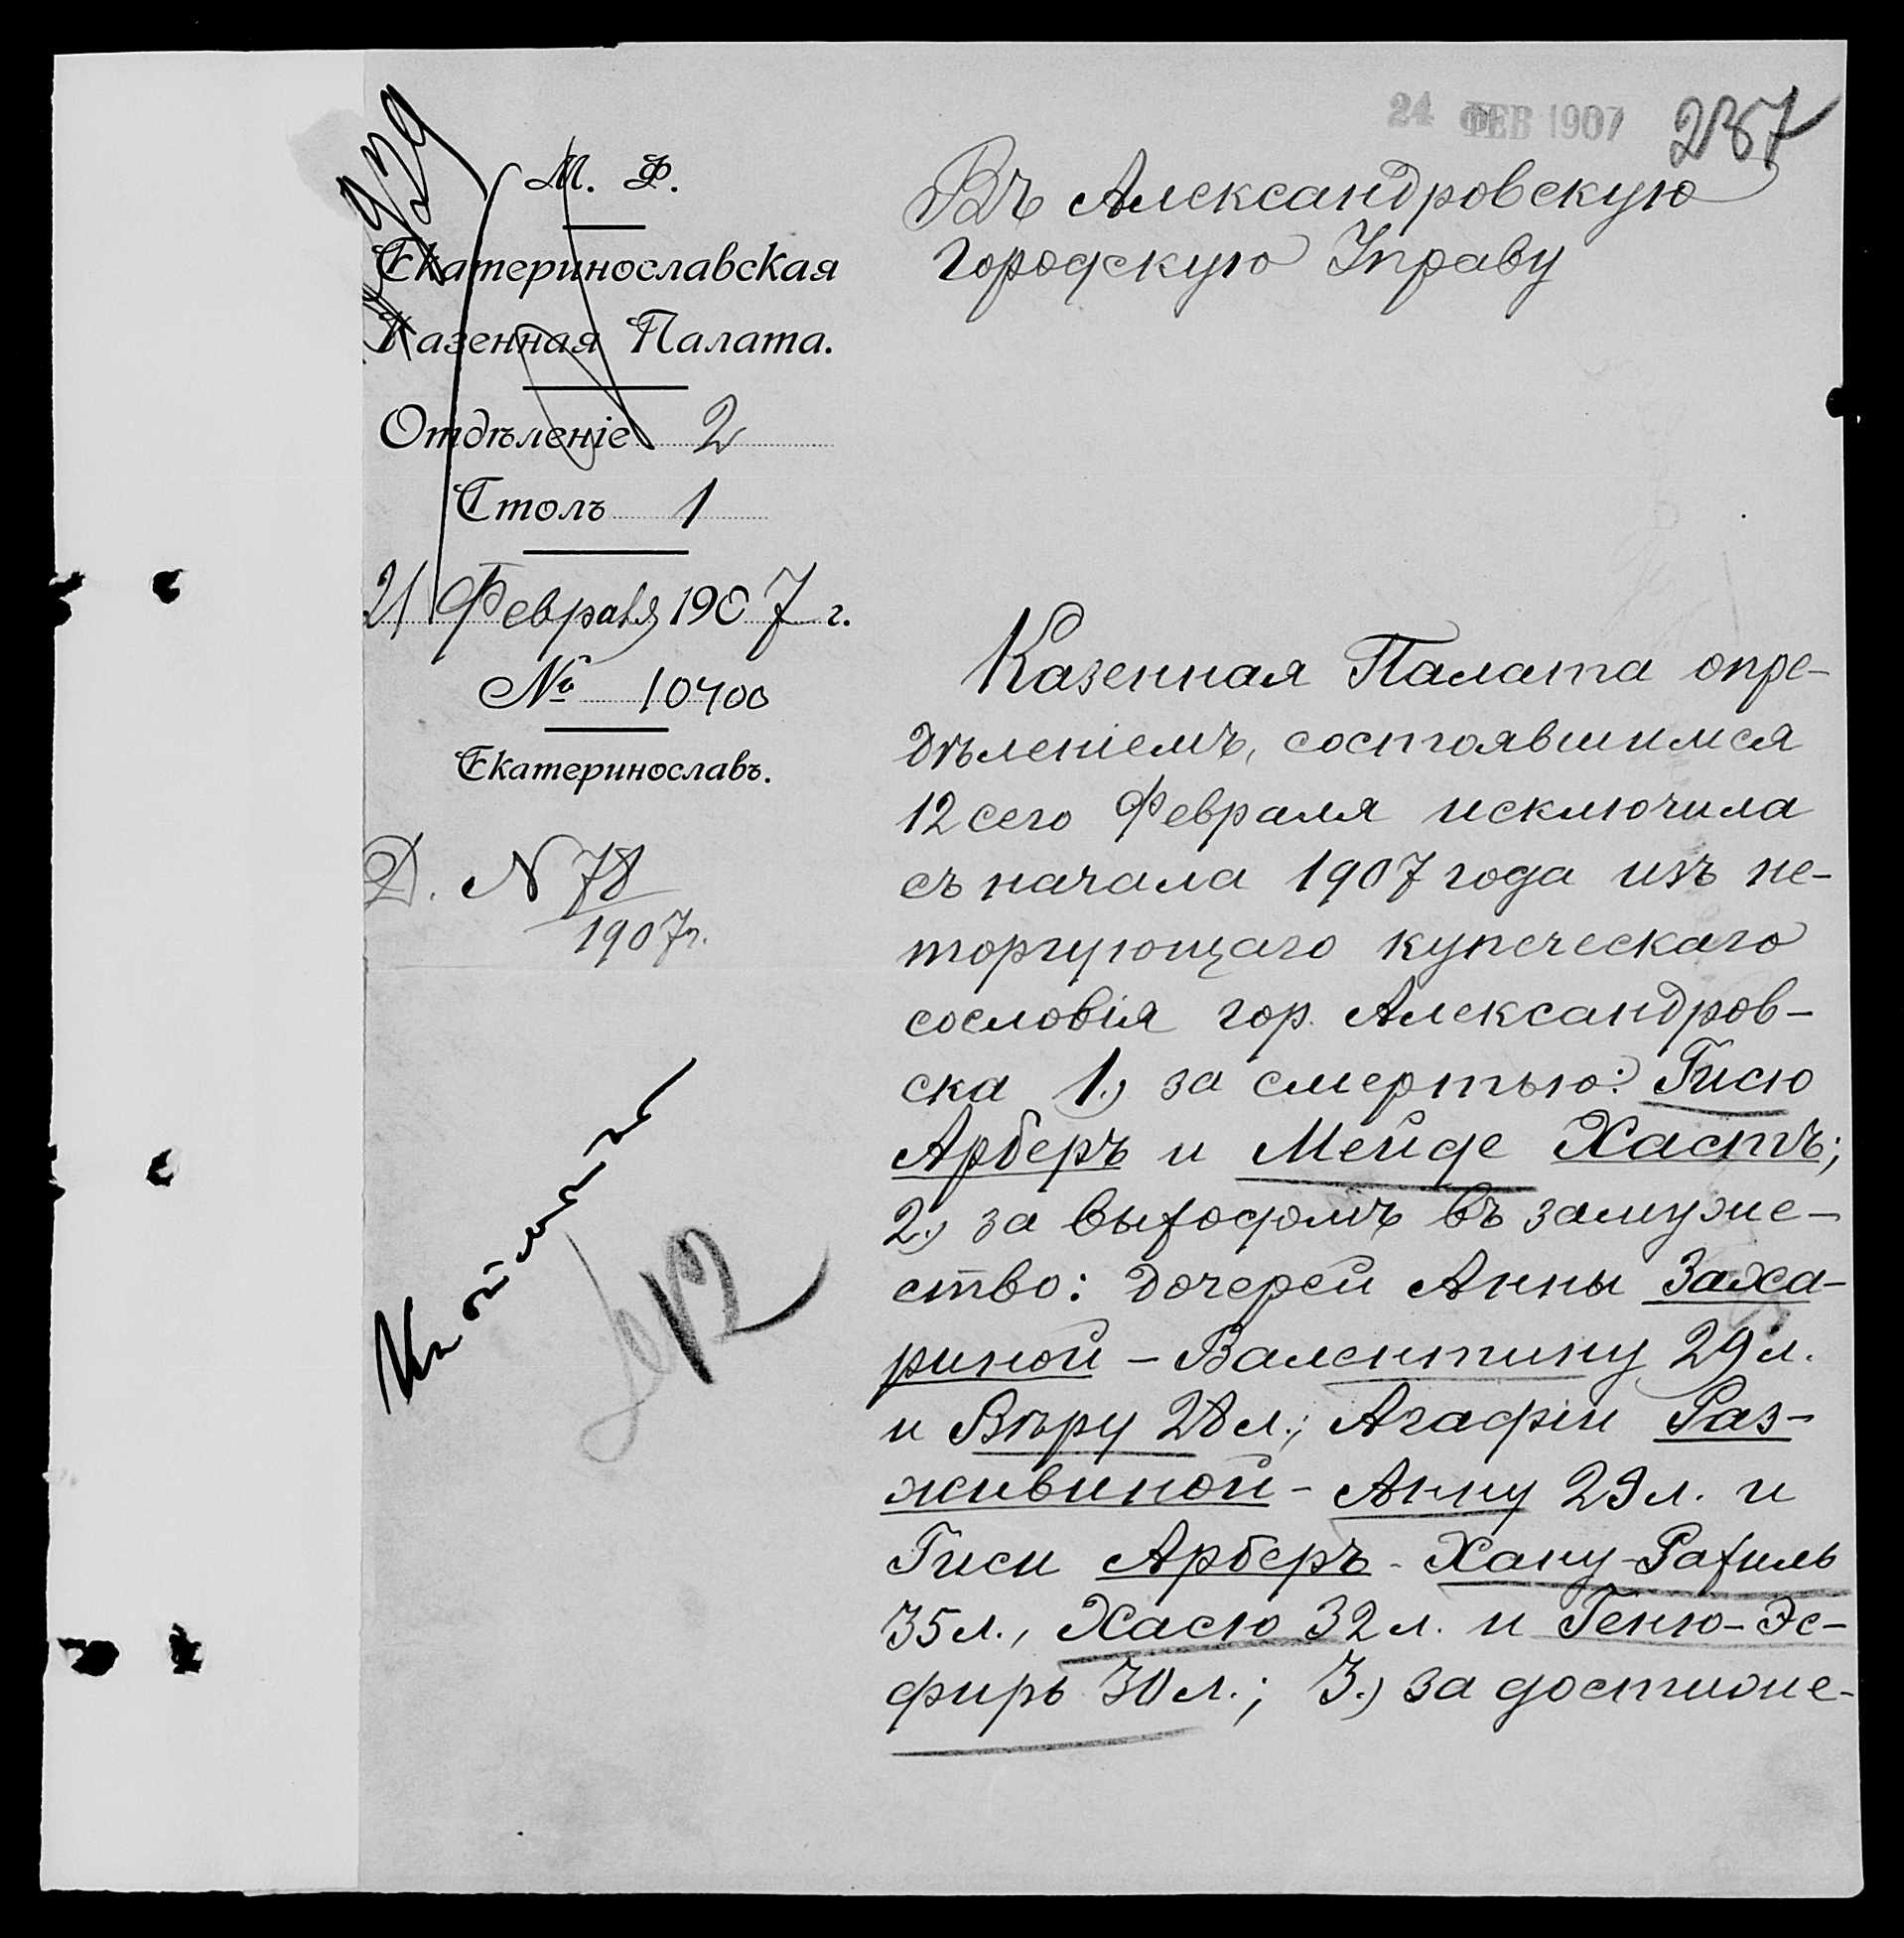 24 ФЕВ 1907
287
М. Ф.
Екатеринославская
Казенная Палата.
Отдѣленіе 2
Столъ 1
21 Февраля 1907 г.
№ 10400
Екатеринославъ.
Д. N 78
1907 г.
Въ Александровскую
Городскую Управу
Казенная Палата опре-
дѣленіемъ, состоявшимся
12 сего Февраля исключила
съ начала 1907 года изъ не-
торгующаго купеческаго
сословія гор. Александров-
ска 1.) за смертью: Гисю
Арберъ и Мейде Хастъ;
2.) за выходомъ въ замуже-
ство: дочерей Анны Заха-
риной - Валентину 29 л.
и Вѣру 28 л.; Агафіи Раз-
живиной - Анну 29 л. и
Гиси Арберъ - Хану-Рахиль
35 л., Хасю 32 л. и Геню-Эс-
фирь 30 л.; 3.) за достиже-